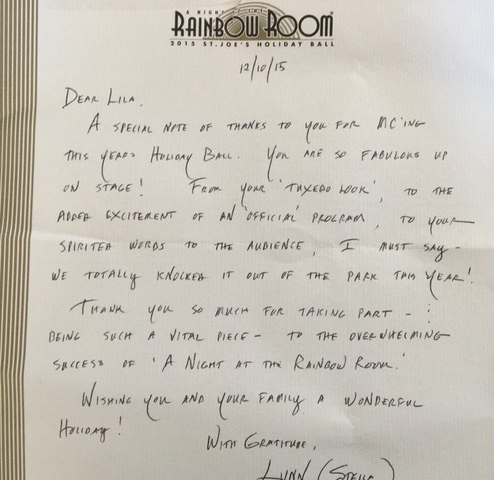 A NIGHT AT THE
RAINBOW ROOM
2015 ST. JOE'S HOLIDAY BALL
12/10/15
DEAR LILA.
A SPECIAL NOTE OF THANKS TO YOU FOR MC'ING
THIS YEARS HOLIDAY BALL. YOU ARE SO FABULOUS UP
ON STAGE! FROM YOUR 'TUXEDO LOOK', TO THE
ADDED EXCITEMENT OF AN 'OFFICIAL' PROGRAM, TO YOUR
SPIRITED WORDS TO THE AUDIENCE, I MUST SAY -
WE TOTALLY KNOCKED IT OUT OF THE PARK THIS YEAR!
THANK YOU SO MUCH FOR TAKING PART - :
BEING SUCH A VITAL PIECE - TO THE OVERWHELMING
SUCCESS OF 'A NIGHT AT THE RAINBOW ROOM.'
WISHING YOU AND YOUR FAMILY A WONDERFUL
HOLIDAY!
WITH GRATITUDE,
LYNN